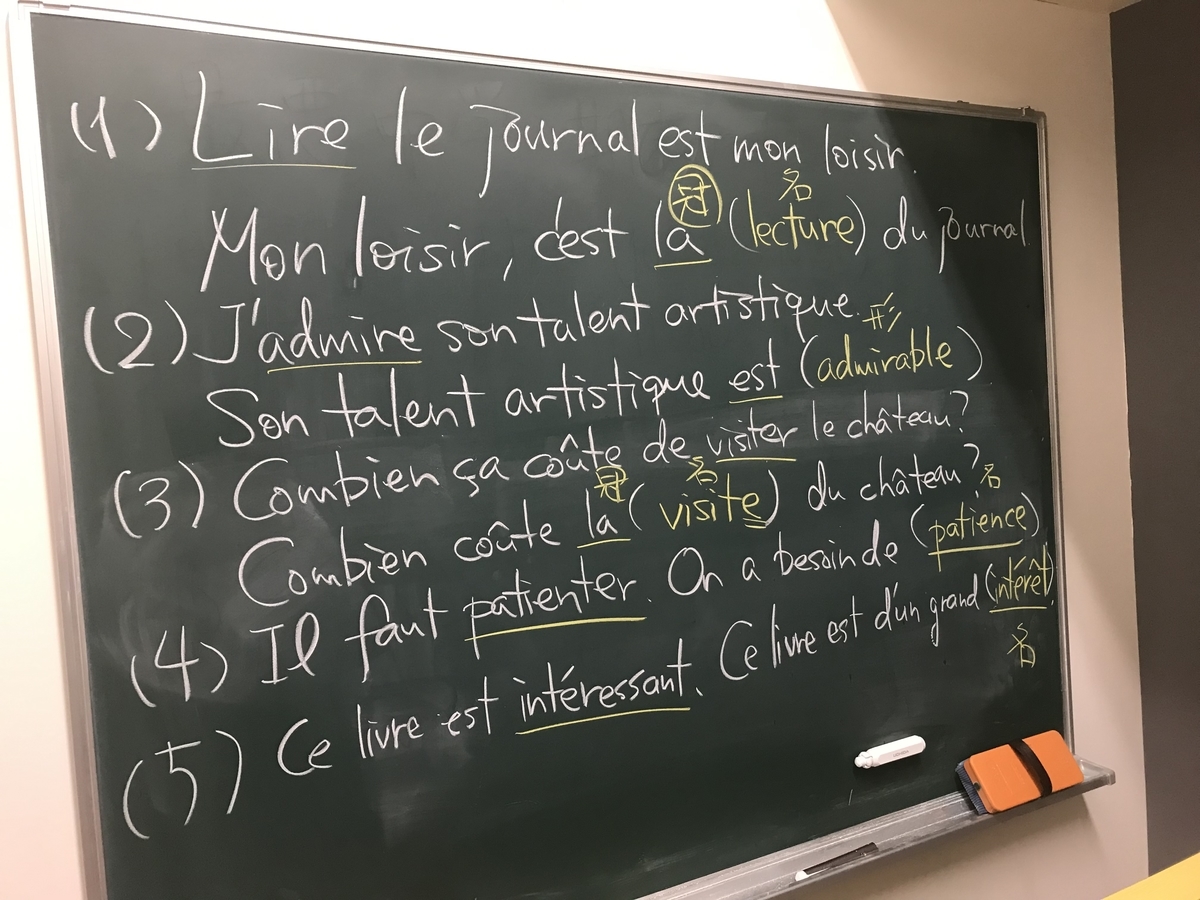 (1) Lire le journal est mon loisir.
冠 名
Mon loisir, c'est la (lecture) du journal.
(2) J'admire son talent artistique.
形
Son talent artistique est (admirable)
(3) Combien ça coûte de visiter le château?
冠 名
Combien coûte la (visite) du château?
名
(4) Il faut patienter. On a besoin de (patience)
(5) Ce livre est intéressant. Ce livre est d'un grand (intérêt).
名